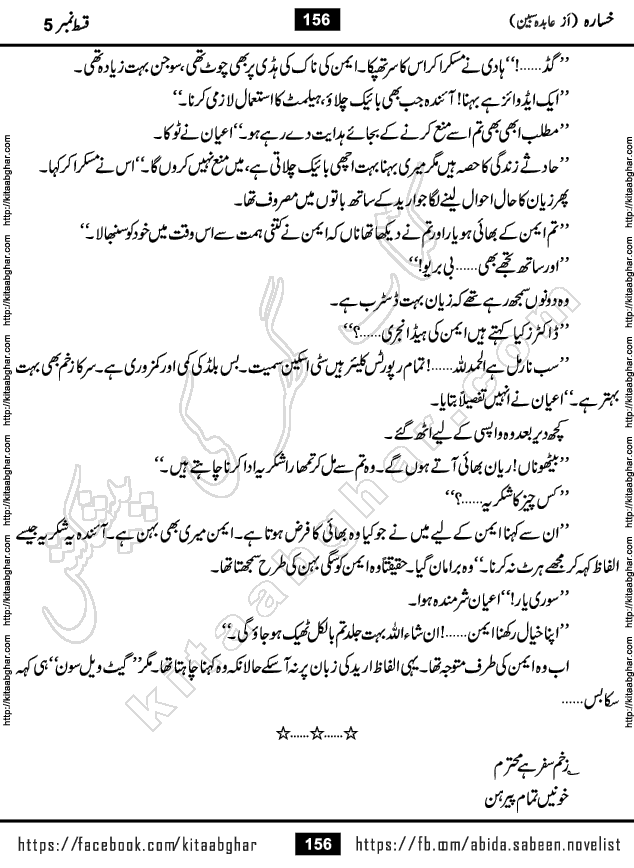 خسارہ (از عابدہ سبین) 156 قسط نمبر 5
’’گڈ......!‘‘ ہادی نے مسکرا کر اس کا سر تھپکا۔ ایمن کی ناک کی ہڈی پر بھی چوٹ تھی، سوجن بہت زیادہ تھی۔
’’ایک ایڈوائز ہے بہنا! آئندہ جب بھی بائیک چلاؤ، ہیلمٹ کا استعمال لازمی کرنا۔‘‘
’’مطلب ابھی بھی تم اسے منع کرنے کے بجائے ہدایت دے رہے ہو۔‘‘ اعیان نے ٹوکا۔
’’حادثے زندگی کا حصہ ہیں مگر میری بہنا بہت اچھی بائیک چلاتی ہے، میں منع نہیں کروں گا۔‘‘ اس نے مسکرا کر کہا۔
پھر زیان کا حال احوال لینے لگا جو ارید کے ساتھ باتوں میں مصروف تھا۔
’’تم ایمن کے بھائی ہو یار اور تم نے دیکھا تھا ناں کہ ایمن نے کتنی ہمت سے اس وقت میں خود کو سنبھالا۔‘‘
’’اور ساتھ تجھے بھی...... بی بریو!‘‘
وہ دونوں سمجھ رہے تھے کہ زیان بہت ڈسٹرب ہے۔
’’ڈاکٹرز کیا کہتے ہیں ایمن کی ہیڈ انجری......؟‘‘
’’سب نارمل ہے الحمدللہ......! تمام رپورٹس کلیئر ہیں سٹی اسکین سمیت۔ بس بلڈ کی کمی اور کمزوری ہے۔ سر کا زخم بھی بہت
بہتر ہے۔‘‘ اعیان نے انہیں تفصیلاً بتایا۔
کچھ دیر بعد وہ واپسی کے لیے اٹھ گئے۔
’’بیٹھو ناں! ریان بھائی آتے ہوں گے۔ وہ تم سے مل کر تمھارا شکریہ ادا کرنا چاہتے ہیں۔‘‘
’’کس چیز کا شکریہ......؟‘‘
’’ان سے کہنا ایمن کے لیے میں نے جو کیا وہ بھائی کا فرض ہوتا ہے۔ ایمن میری بھی بہن ہے۔ آئندہ یہ شکریہ جیسے
الفاظ کہہ کر مجھے ہرٹ نہ کرنا۔‘‘ وہ برا مان گیا۔ حقیقتاً وہ ایمن کو سگی بہن کی طرح سمجھتا تھا۔
’’سوری یار!‘‘ اعیان شرمندہ ہوا۔
’’اپنا خیال رکھنا ایمن......! ان شاء اللہ بہت جلد تم بالکل ٹھیک ہو جاؤ گی۔‘‘
اب وہ ایمن کی طرف متوجہ تھا۔ یہی الفاظ ارید کی زبان پر نہ آ سکے حالانکہ وہ کہنا چاہتا تھا۔ مگر ’’گیٹ ویل سون‘‘ ہی کہہ
سکا بس......
☆......☆......☆
؎ زخم سفر ہے محترم
خونیں تمام پیرہن
https://facebook.com/kitaabghar 156 https://fb.com/abida.sabeen.novelist
http://kitaabghar.com http://kitaabghar.com http://kitaabghar.com http://kitaabghar.com http://kitaabghar.com http://kitaabghar.com
http://kitaabghar.com http://kitaabghar.com http://kitaabghar.com http://kitaabghar.com http://kitaabghar.com http://kitaabghar.com
کتاب گھر کی پیشکش
kitaabghar.com